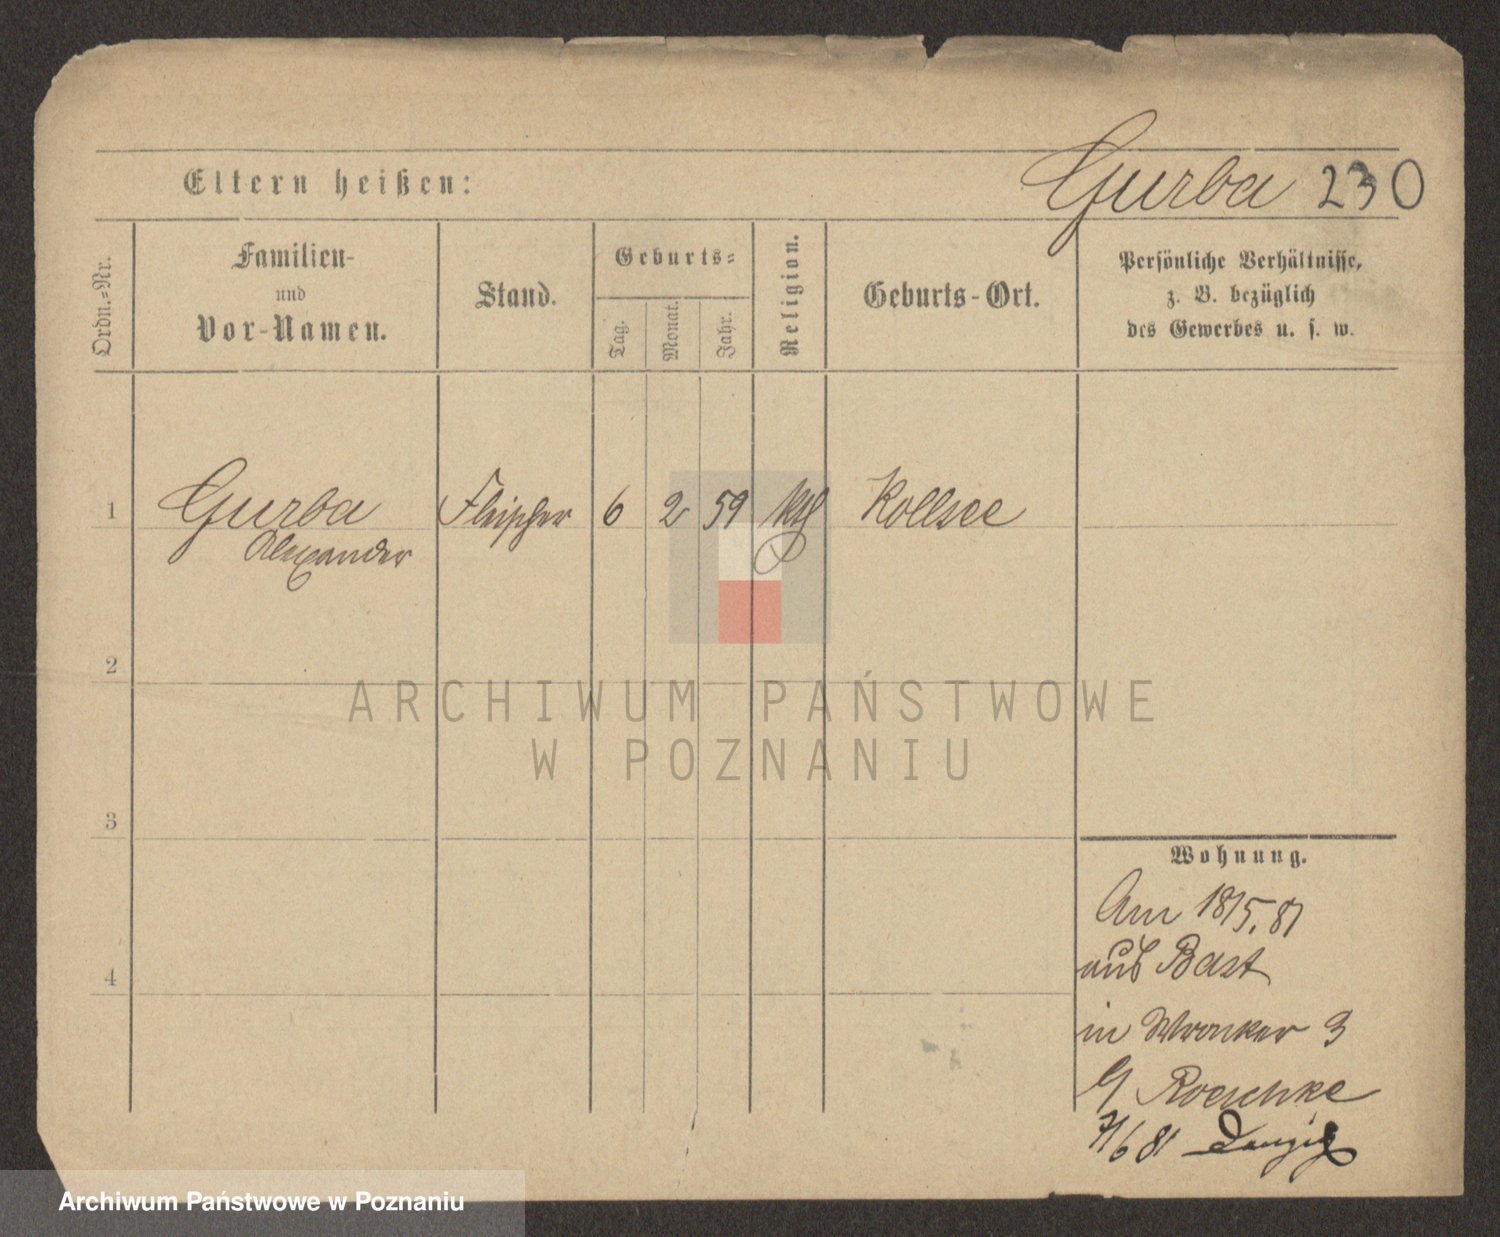 Gurba 230
Eltern heißen:
Ordn.-Nr.
Familien-
und
Vor-Namen.
Stand.
Geburts-
Tag.
Monat.
Jahr.
Religion.
Geburts-Ort.
Persönliche Verhältnisse,
z. B. bezüglich
des Gewerbes u. s. w.
1 Gurba Fleischer 6 2 59 kth Kollsee
Alexander
2
3
4
ARCHIWUM PAŃSTWOWE
W POZNANIU
Wohnung.
Am 18/5.81
aus Bast
in Wronker 3
Roeschke
7/6 81 Danzig
Archiwum Państwowe w Poznaniu